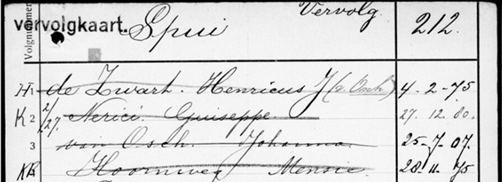 Vervolg.
vervolgkaart. Spui 212.
Volgnummer
H. de Zwart. Henricus J (v. Osch) 4-2-75
K 2/27. 2 Nerici Guiseppe 27.12.80.
3 van Osch Johanna 25-7.07.
K Hoornweg Mensie 28-11.75